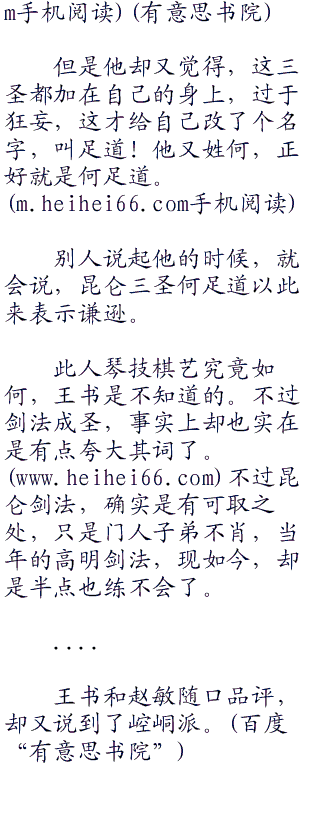 m手机阅读)(有意思书院)
但是他却又觉得，这三
圣都加在自己的身上，过于
狂妄，这才给自己改了个名
字，叫足道！他又姓何，正
好就是何足道。
(m.heihei66.com手机阅读)
别人说起他的时候，就
会说，昆仑三圣何足道以此
来表示谦逊。
此人琴技棋艺究竟如
何，王书是不知道的。不过
剑法成圣，事实上却也实在
是有点夸大其词了。
(www.heihei66.com)不过昆
仑剑法，确实是有可取之
处，只是门人子弟不肖，当
年的高明剑法，现如今，却
是半点也练不会了。
....
王书和赵敏随口品评，
却又说到了崆峒派。(百度
“有意思书院”)